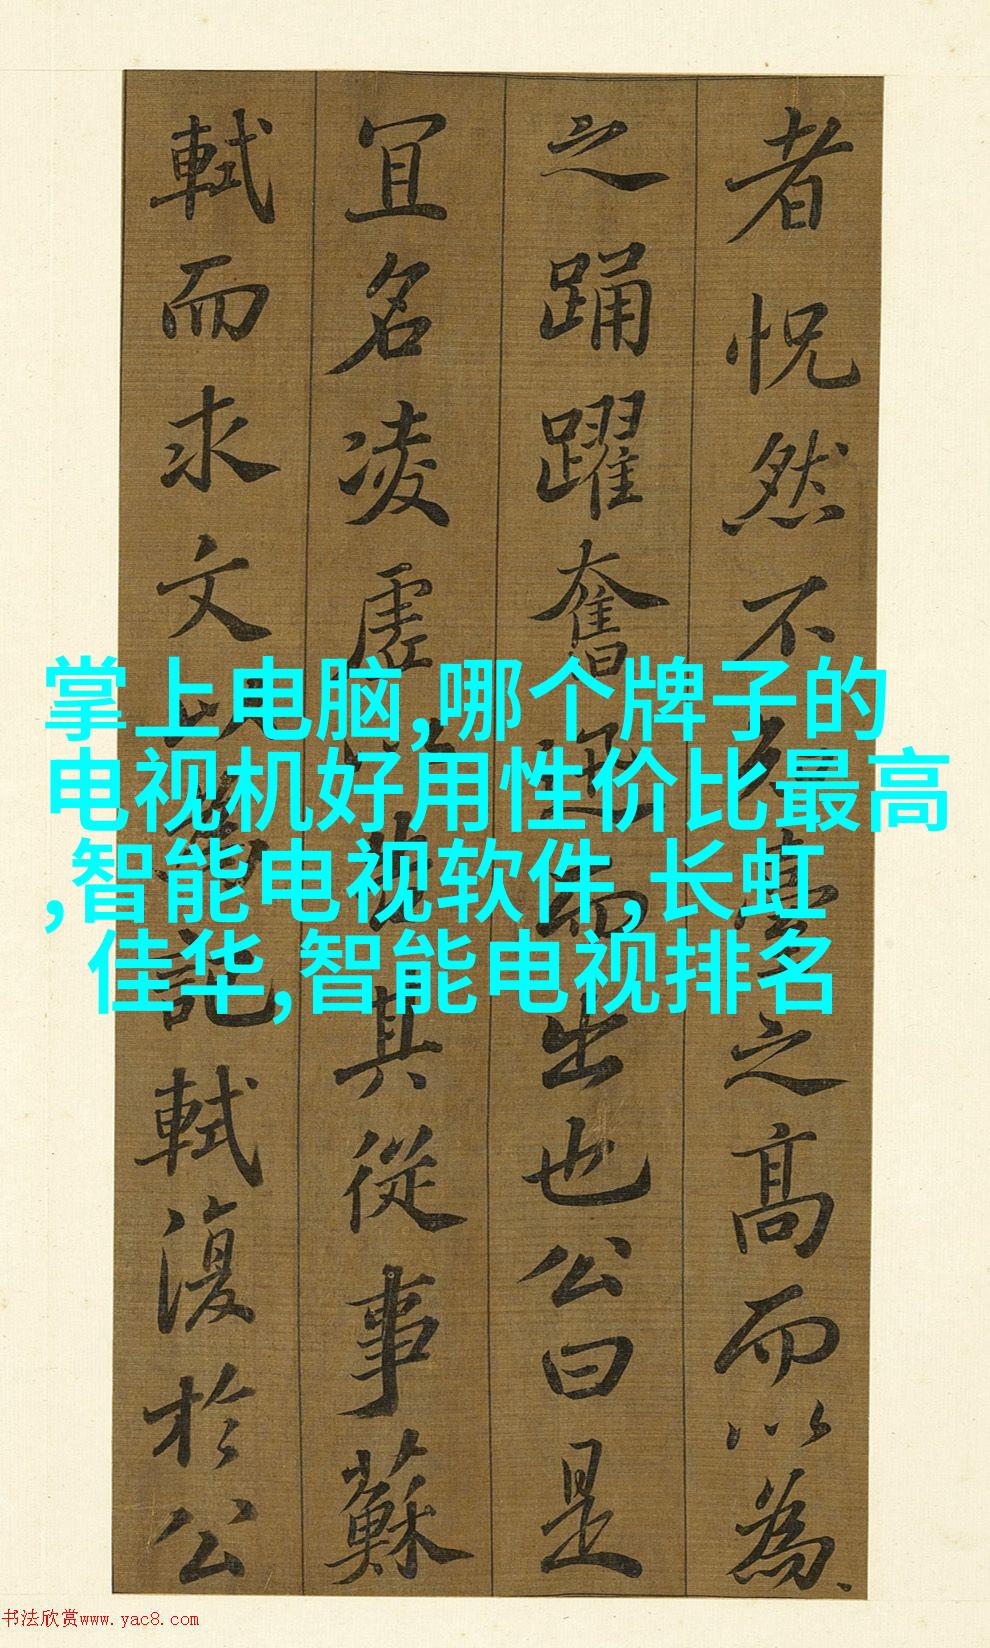 者怳然不知臺之高而以為
之踊躍奮迅而出也公曰是
宜名凌虛以告其從事蘇
軾而求文以為記軾復於公
掌上电脑,哪个牌子的
电视机好用性价比最高
,智能电视软件,长虹
佳华,智能电视排名
书法欣赏www.yac8.com